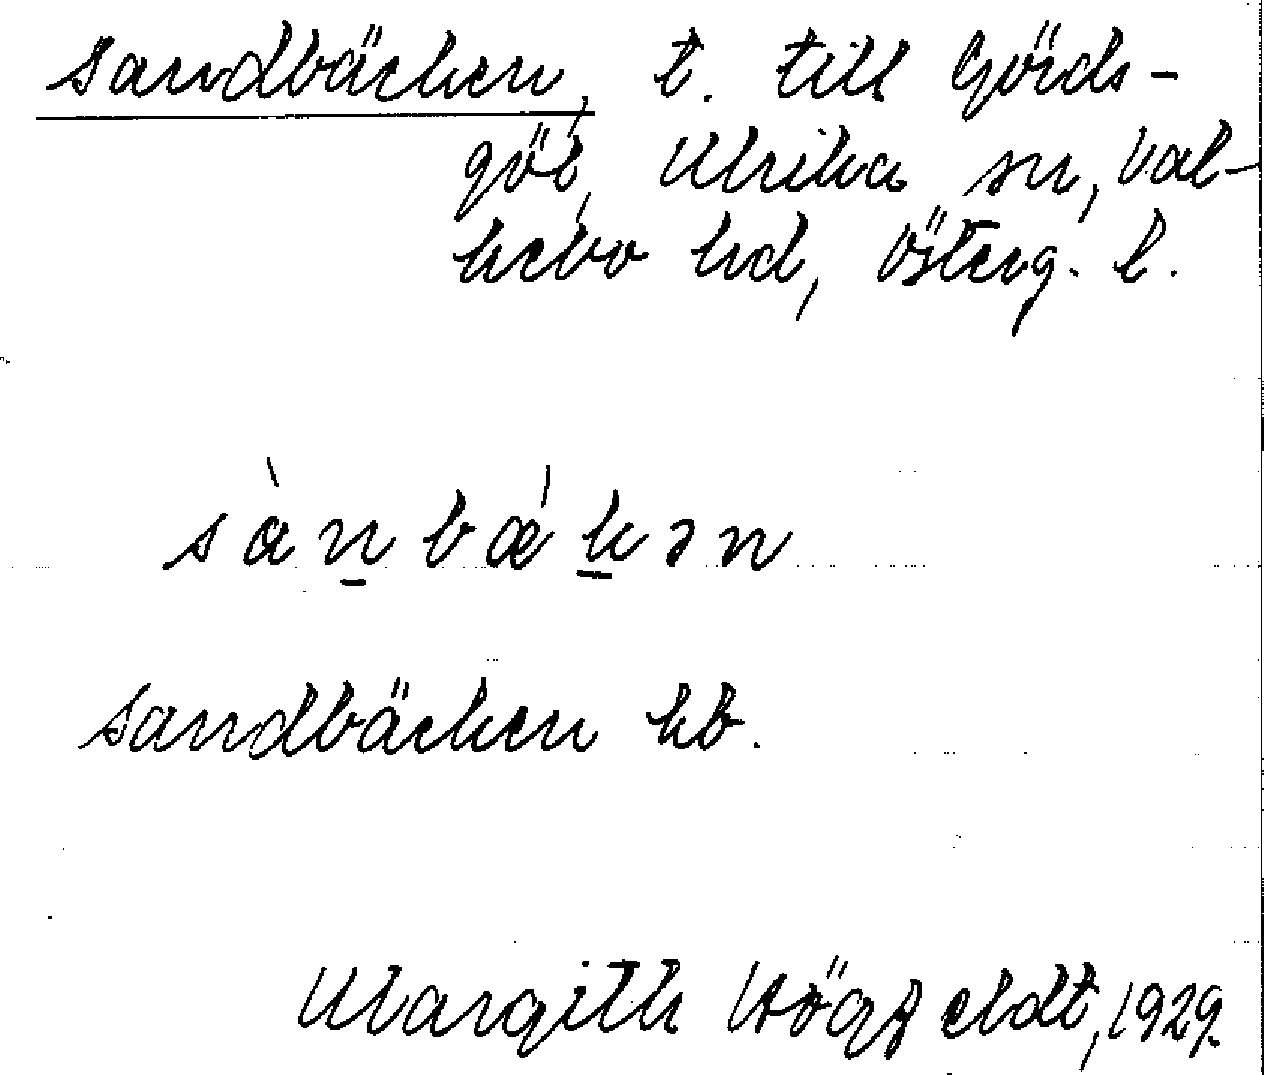 Sandbäcken, t. till Görds-
göl, Ulrika sn, Val-
kebo hd, Österg. l.
sànbǽkən
Sandbäcken kb.
Margith Högfeldt, 1929.